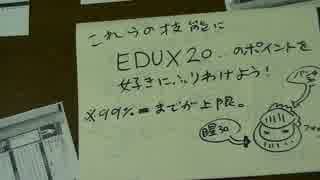 これらの技能に
EDUX20.のポイントを
好きにふりわけよう!
※99%までが上限。